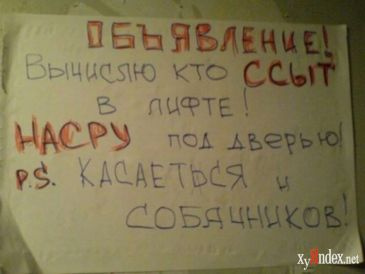 ОБЪЯВЛЕНИЕ!
ВЫЧИСЛЮ КТО ССЫТ
В ЛИФТЕ!
НАСРУ ПОД ДВЕРЬЮ!
P.S. КАСАЕТЬСЯ И
СОБАЧНИКОВ!
XyЯndex.net